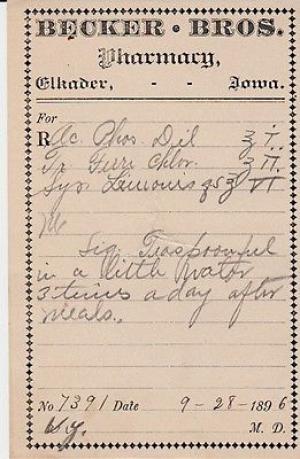 BECKER • BROS.
Pharmacy,
Elkader, - - Iowa.
For
R Ac. Phos. Dil ʒ I.
Tr Ferri Chlor. ʒ II.
Syr Limonis qs ʒ VI
M
Sig. Teaspoonful
in a little water
3 times a day after
meals.
No 7391 Date 9-28-1896
M. D.